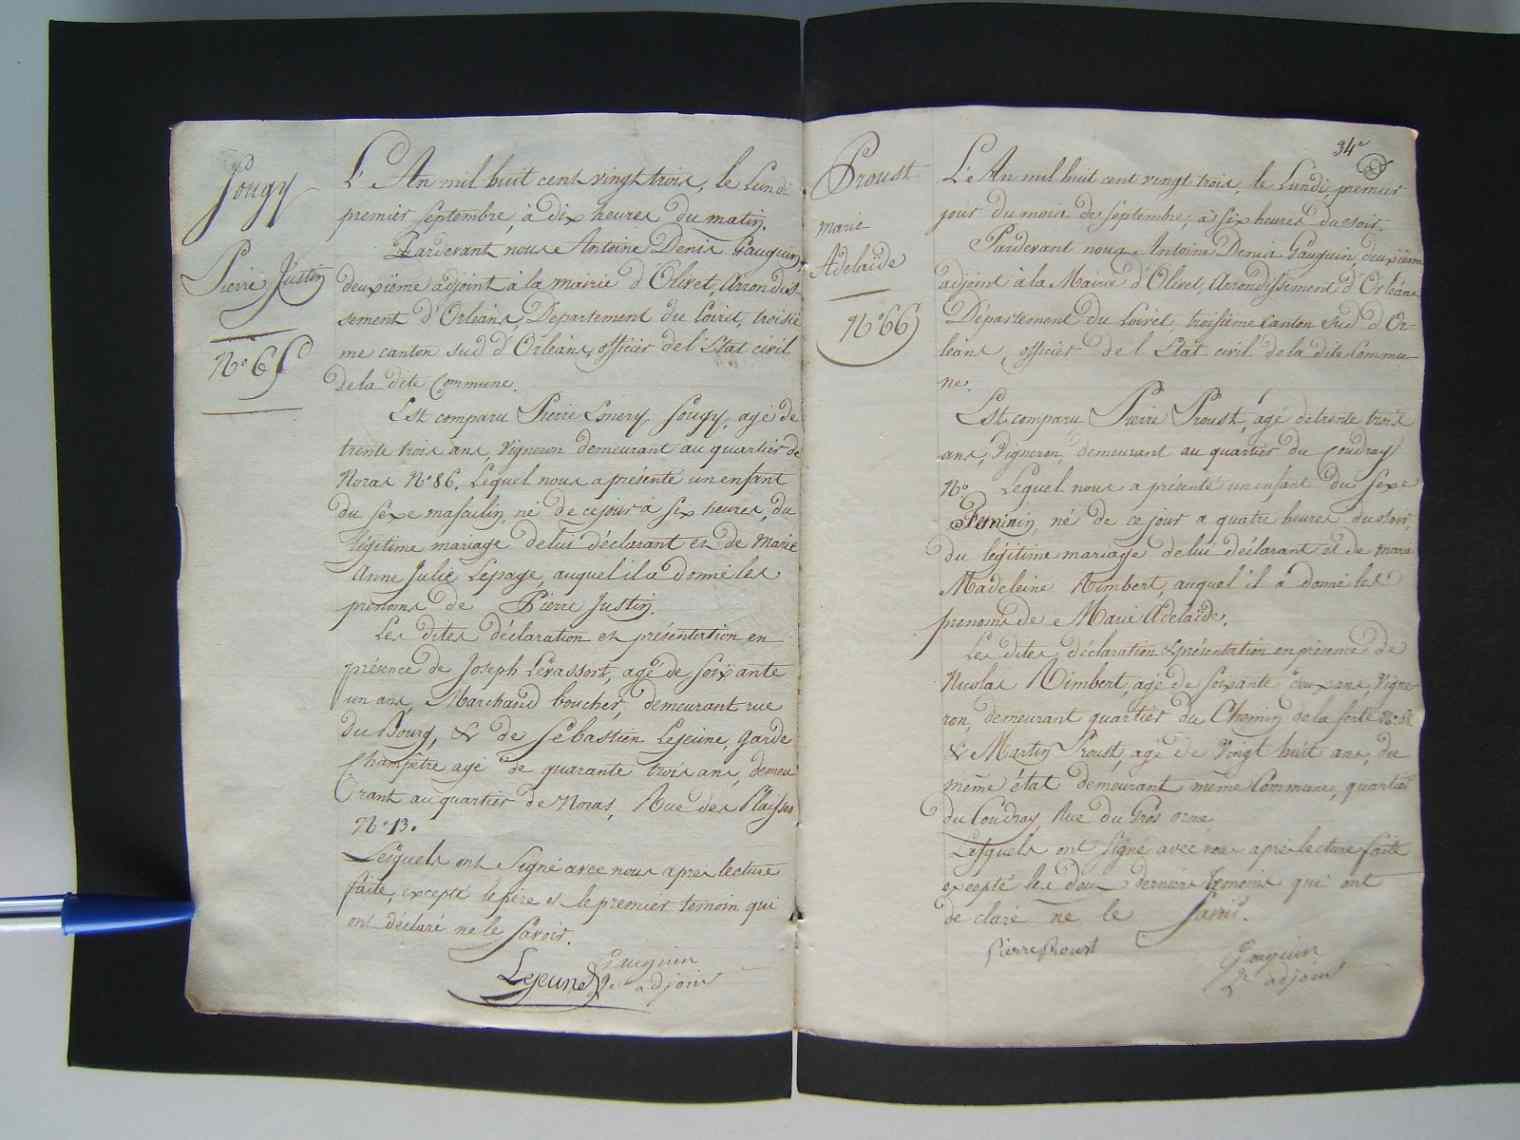 Fougy
Pierre Justin
N° 65
L'An mil huit cent vingt trois, le Lundi
premier septembre, à dix heures du matin.
Pardevant nous Antoine Denis Gauguin,
deuxième adjoint à la mairie d'Olivet, Arrondis-
sement d'Orléans, Département du Loiret, troisiè
me canton sud d'Orléans, officier de l'Etat civil
de la dite Commune.
Est comparu Pierre Fougy, agé de
trente trois ans, Vigneron demeurant au quartier de
Noras N° 86. Lequel nous a présenté un enfant
du séxe masculin, né de ce jour à six heures, du
légitime mariage de lui déclarant et de Marie
Anne Julie Lepage, auquel il a donné les
prenoms de Pierre Justin.
Les dites déclaration et présentation en
présence de Joseph Levassort, agé de soixante
un ans, Marchand boucher, demeurant rue
du Bourg, & de Sébastien Lejeune, garde
Champêtre agé de quarante trois ans, demeu
rant au quartier de Noras, Rue des Plaisses
N° 13.
Lesquels ont signé avec nous apres lecture
faite, excepté le père et le premier temoin qui
ont déclaré ne le savoir.
Gauguin
Lejeune 2e adjoint
34e
Proust
marie
Adelaïde
N° 66
L'An mil huit cent vingt trois, le Lundi, premier
jour du mois de septembre, à six heures du soir.
Pardevant nous Antoine Denis Gauguin, deuxième
adjoint à la Mairie d'Olivet, Arrondissement d'Orléans
Département du Loiret, troisième Canton sud d'Or-
léans, officier de l'Etat civil de la dite Commu-
ne.
Est comparu Pierre Proust, âgé de trente trois
ans, Vigneron, demeurant au quartier du Coudray
N° Lequel nous a présenté un enfant du sexe
Feminin, né de ce jour a quatre heures du soir,
du légitime mariage de lui déclarant et de marie
Madeleine Rimbert, auquel il a donné les
prenoms de Marie Adelaïde.
Les dites déclaration & présentation en présence de
Nicolas Rimbert, agé de soixante deux ans, Vigne-
ron, demeurant quartier du Chemin de la ferté
& Martin Proust, agé de vingt huit ans, du
même état demeurant même Commune, quartier
du Coudray Rue du Gros orme
Lesquels ont signé avec nous après lecture faite
excepté les deux derniers temoins qui ont
declaré ne le savoir.
Pierre Proust
Gauguin
2e adjoint